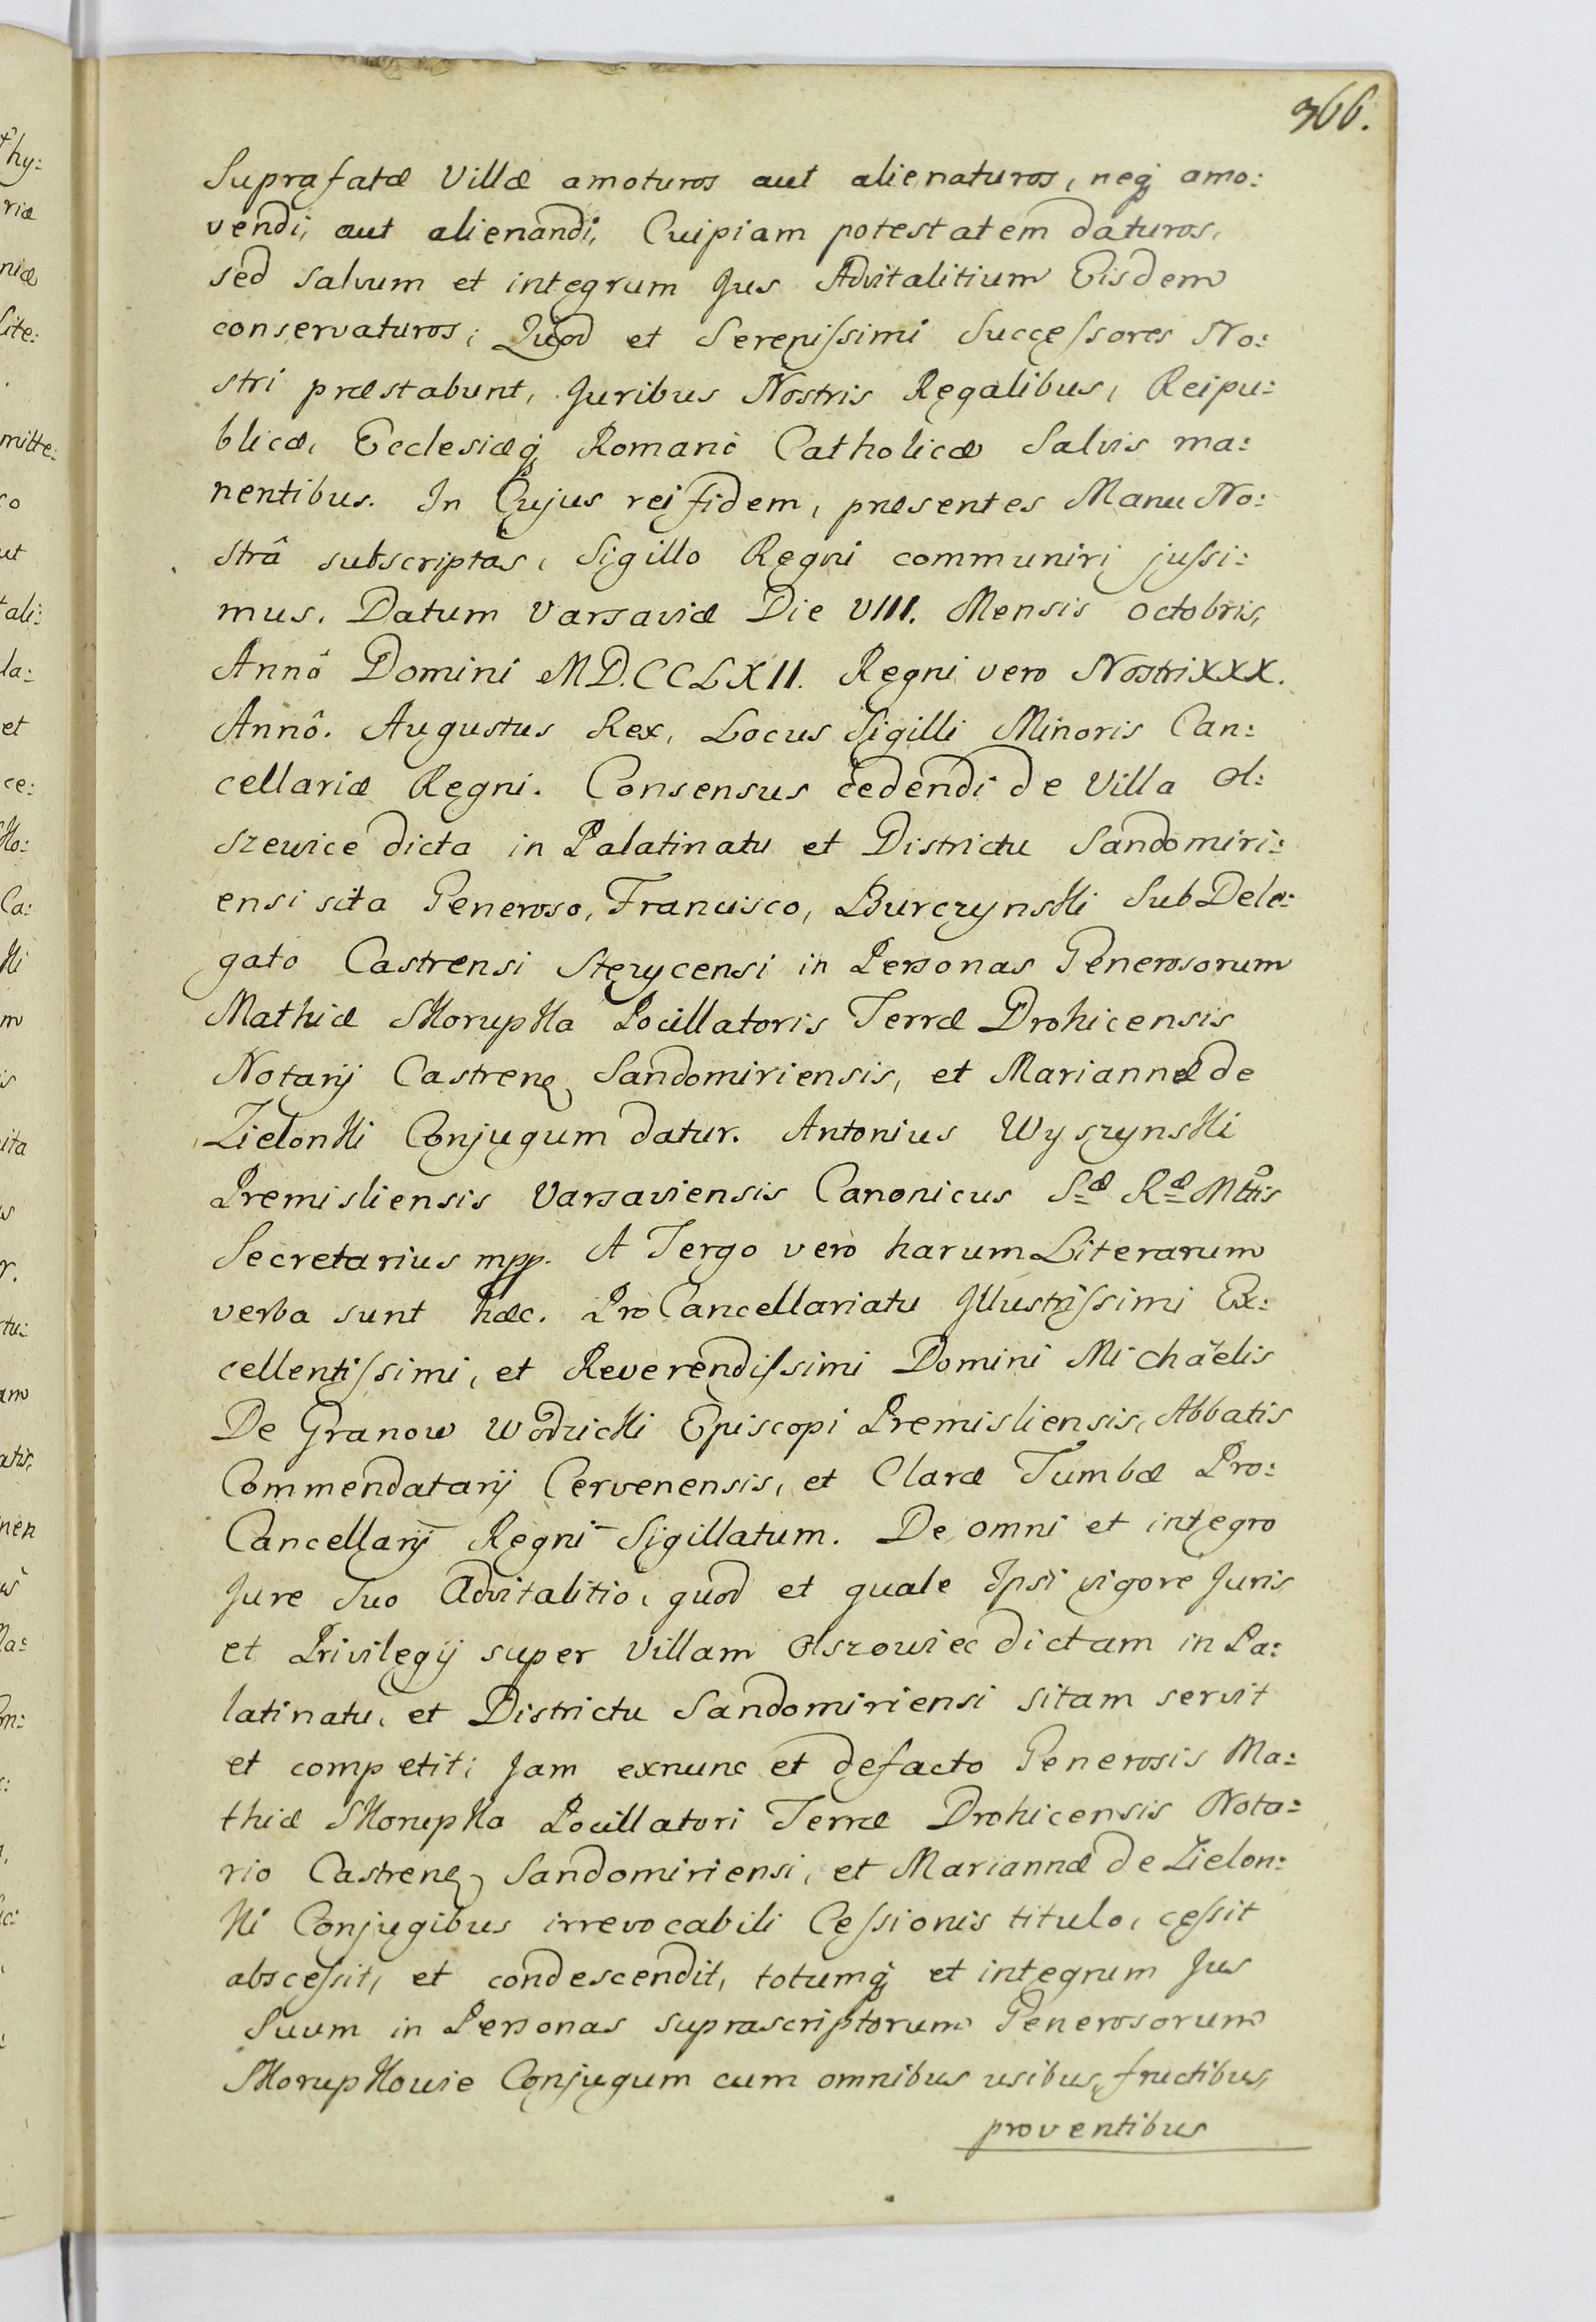 366.
Suprafatæ Villæ amoturos aut alienaturos, neq; amo:
vendi, aut alienandi, Cuipiam potestatem daturos,
sed salvum et integrum Jus Advitalitium Eisdem
conservaturos; Quod et Serenissimi Successores No:
stri præstabunt, Juribus Nostris Regalibus, Reipu:
blicæ, Ecclesiæq; Romanô Catholicæ Salvis ma:
nentibus. In Cujus rei fidem, præsentes Manu No:
strâ subscriptas, Sigillo Regni communiri jussi:
mus. Datum Varsaviæ Die VIII. Mensis octobris,
Annô Domini MD.CCLXII. Regni vero Nostri XXX.
Annô. Augustus Rex, Locus Sigilli Minoris Can:
cellariæ Regni. Consensus cedendi de Villa Ol:
szewice dicta in Palatinatu et Districtu Sandomiri:
ensi sita Generoso, Francisco, Burczynski SubDele:
gato Castrensi Stęzycensi in Personas Generosorum
Mathiæ Skorupka Pocillatoris Terræ Drohicensis
Notarij Castren: Sandomiriensis, et Mariannæ de
Zielonki Conjugum datur. Antonius Wyszynski
Premisliensis Varsaviensis Canonicus Sæ Ræ Mttis
Secretarius mpp. A Tergo vero harum Literarum
verba sunt hæc. ProCancellariatu Illustrissimi Ex:
cellentissimi, et Reverendissimi Domini Michaëlis
De Granow Wodzicki Episcopi Premisliensis, Abbatis
Commendatarij Cervenensis, et Claræ Tumbæ Pro:
Cancellarij Regni Sigillatum. De omni et integro
Jure Suo Advitalitio, quod et quale Ipsi vigore Juris
et Privilegij super Villam Olszowiec dictam in Pa:
latinatu, et Districtu Sandomiriensi sitam servit
et competit; Jam exnunc et defacto Generosis Ma:
thiæ Skorupka Pocillatori Terræ Drohicensis Nota:
rio Castren: Sandomiriensi, et Mariannæ de Zielon:
ki Conjugibus irrevocabili Cessionis titulo, cessit
abscessit, et condescendit, totumq; et integrum Jus
Suum in Personas suprascriptorum Generosorum
Skorupkowie Conjugum cum omnibus usibus, fructibus,
proventibus